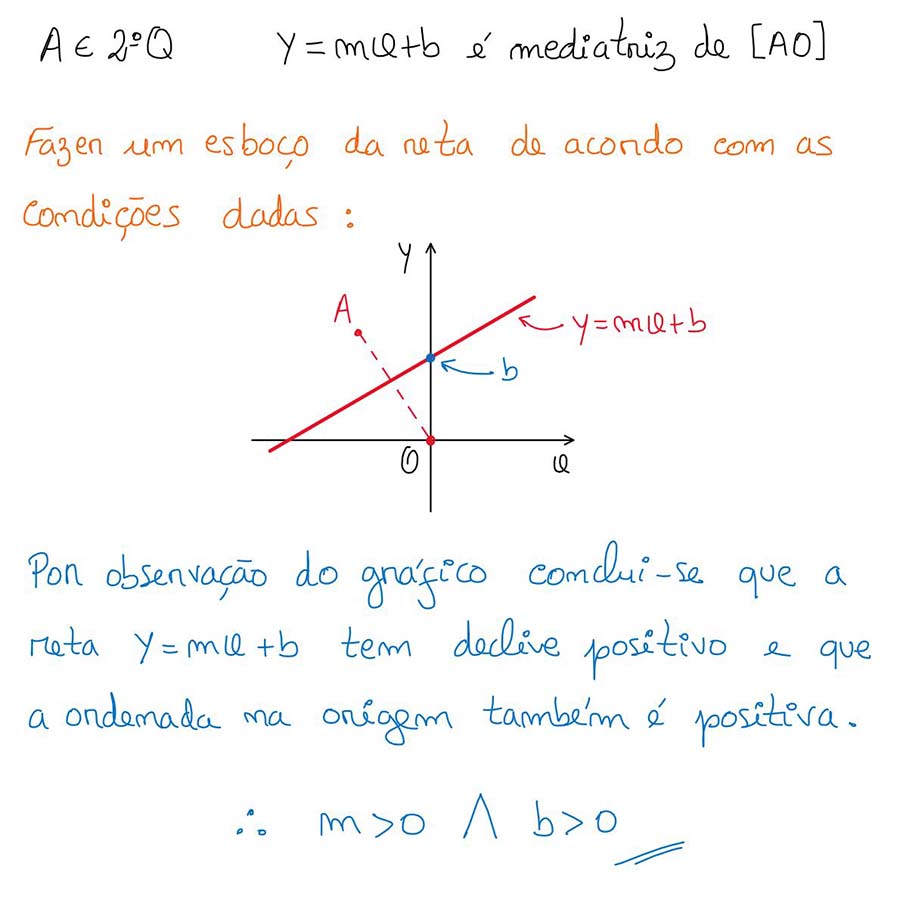 A ∈ 2ºQ y = mx+b é mediatriz de [AO]
Fazer um esboço da reta de acordo com as
condições dadas :
y
A
y=mx+b
b
O
x
Por observação do gráfico conclui-se que a
reta y=mx+b tem declive positivo e que
a ordenada na origem também é positiva.
∴ m>0 ∧ b>0